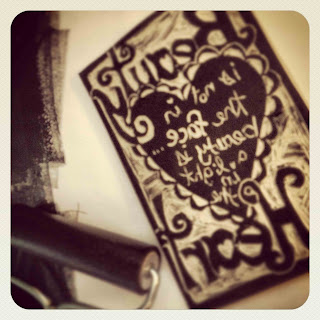 Beauty
is not
in
the face
...
beauty is
a light
in the
Heart